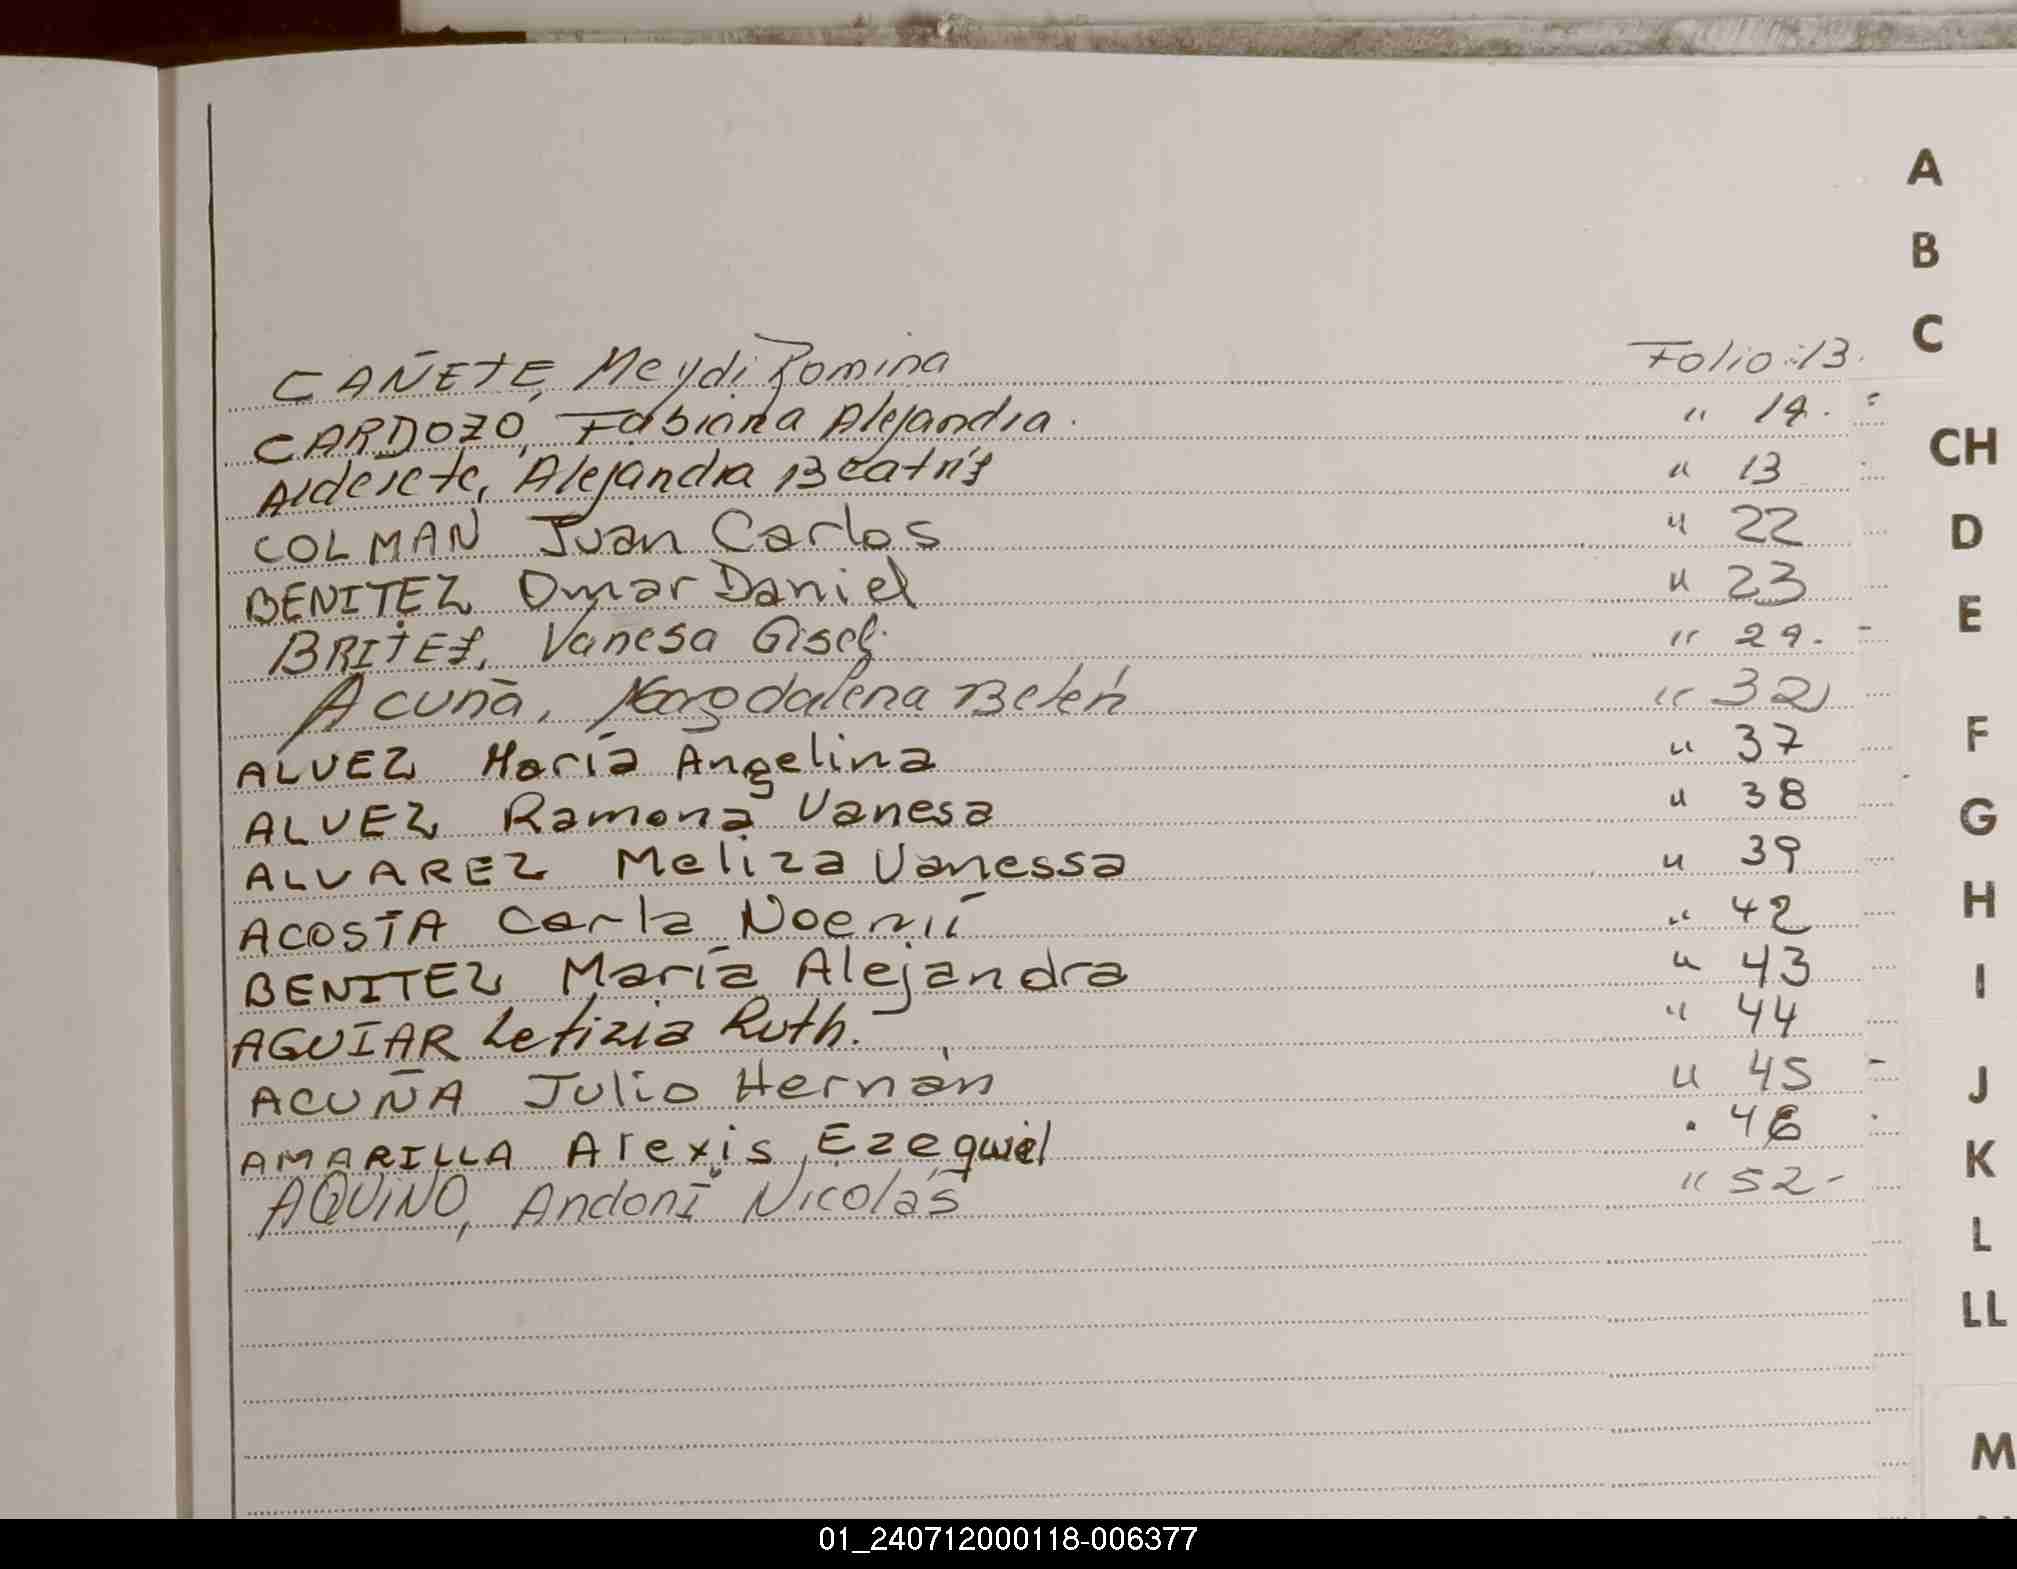 A
B
C
CAÑETE, Meydi Romina Folio: 13.
CARDOZO, Fabiana Alejandra. " 14.
CH
Alderete, Alejandra Beatriz " 13
COLMAN Juan Carlos " 22
D
BENITEZ Omar Daniel " 23
E
BRITEZ, Vanesa Gisel. " 29.-
Acuña, Magdalena Belén " 32
F
ALVEZ María Angelina " 37
ALVEZ Ramona Vanesa " 38
G
ALVAREZ Meliza Vanessa " 39
H
ACOSTA Carla Noemí " 42
BENITEZ María Alejandra " 43
I
AGUIAR Letizia Ruth. " 44
ACUÑA Julio Hernán " 45 -
J
AMARILLA Alexis Ezequiel " 46
K
AQUINO, Andoni Nicolás " 52-
L
LL
M
01_240712000118-006377